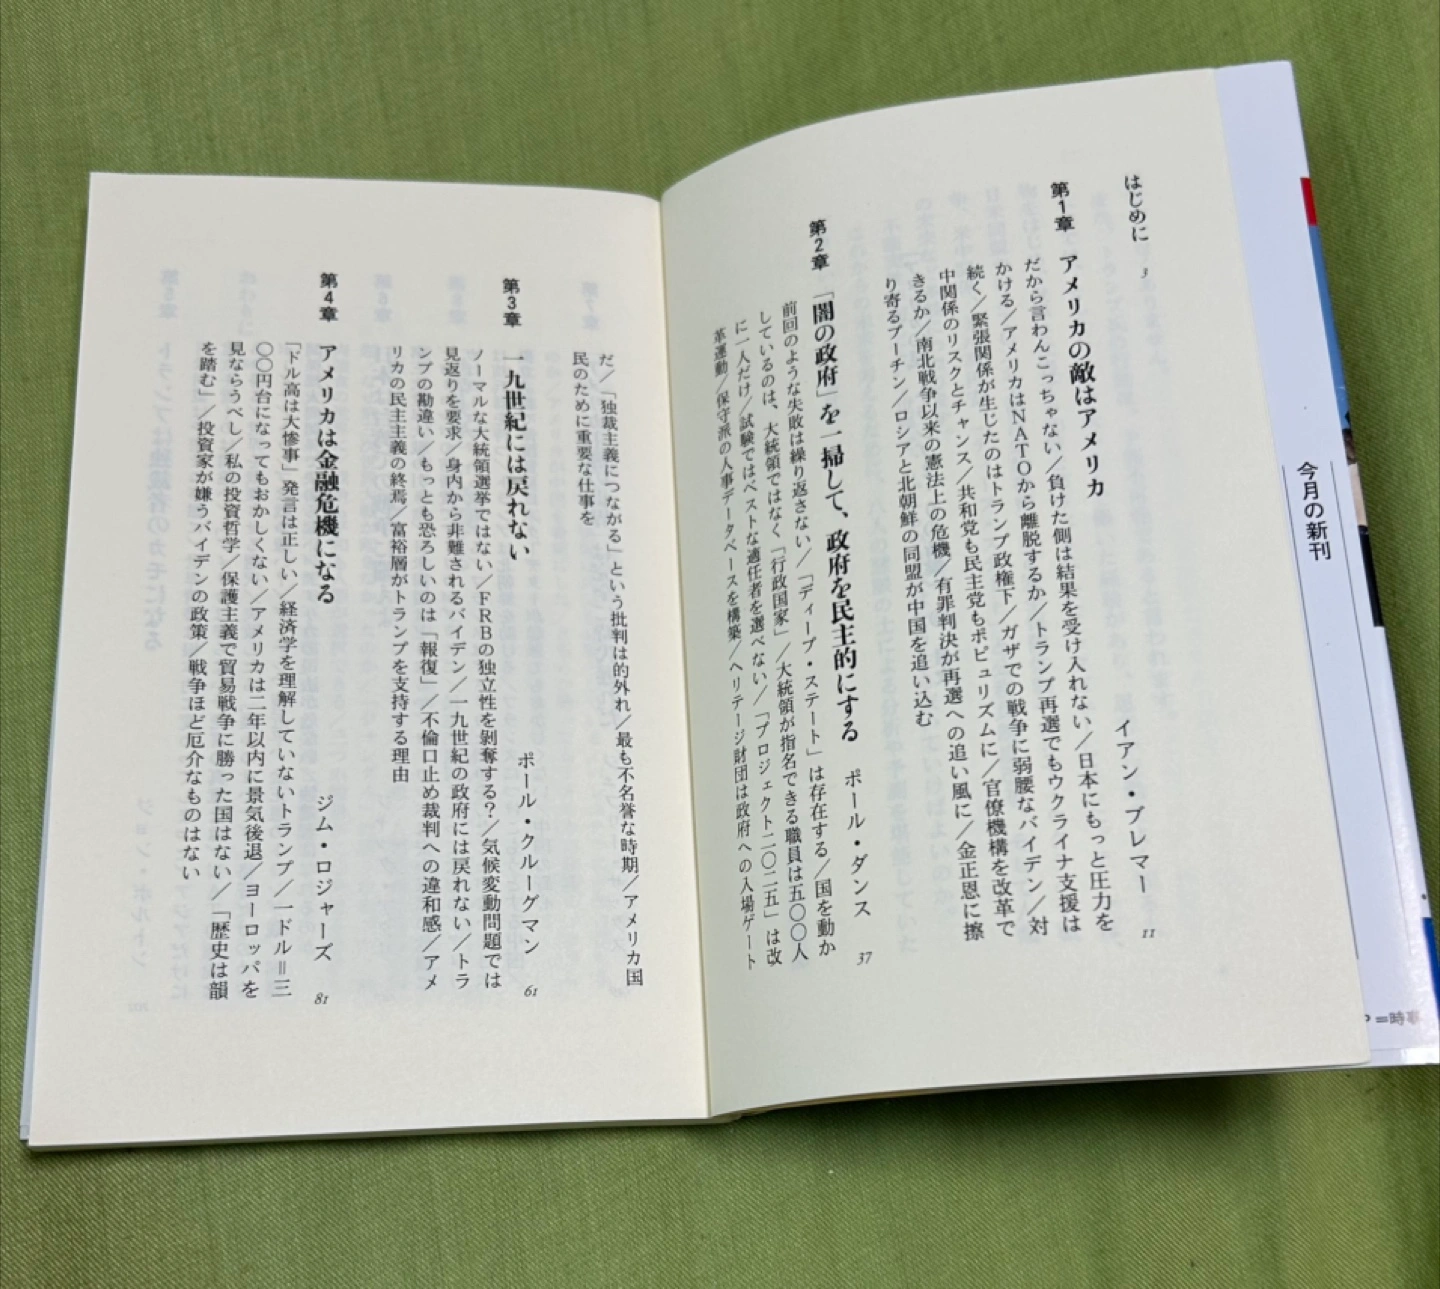 はじめに 3
第1章 アメリカの敵はアメリカ イアン・ブレマー 11
だから言わんこっちゃない／負けた側は結果を受け入れない／日本にもっと圧力を
かける／アメリカはNATOから離脱するか／トランプ再選でもウクライナ支援は
続く／緊張関係が生じたのはトランプ政権下／ガザでの戦争に弱腰なバイデン／対
中関係のリスクとチャンス／共和党も民主党もポピュリズムに／官僚機構を改革で
きるか／南北戦争以来の憲法上の危機／有罪判決が再選への追い風に／金正恩に擦
り寄るプーチン／ロシアと北朝鮮の同盟が中国を追い込む
第2章 「闇の政府」を一掃して、政府を民主的にする ポール・ダンス 37
前回のような失敗は繰り返さない／「ディープ・ステート」は存在する／国を動か
しているのは、大統領ではなく「行政国家」／大統領が指名できる職員は五〇〇人
に一人だけ／試験ではベストな適任者を選べない／「プロジェクト二〇二五」は改
革運動／保守派の人事データベースを構築／ヘリテージ財団は政府への入場ゲート
だ／「独裁主義につながる」という批判は的外れ／最も不名誉な時期／アメリカ国
民のために重要な仕事を
第3章 一九世紀には戻れない ポール・クルーグマン 61
ノーマルな大統領選挙ではない／FRBの独立性を剝奪する？／気候変動問題では
見返りを要求／身内から非難されるバイデン／一九世紀の政府には戻れない／トラ
ンプの勘違い／もっとも恐ろしいのは「報復」／不倫口止め裁判への違和感／アメ
リカの民主主義の終焉／富裕層がトランプを支持する理由
第4章 アメリカは金融危機になる ジム・ロジャーズ 81
「ドル高は大惨事」発言は正しい／経済学を理解していないトランプ／一ドル＝三
〇〇円台になってもおかしくない／アメリカは二年以内に景気後退／ヨーロッパを
見ならうべし／私の投資哲学／保護主義で貿易戦争に勝った国はない／「歴史は韻
を踏む」／投資家が嫌うバイデンの政策／戦争ほど厄介なものはない
今月の新刊
＝時事